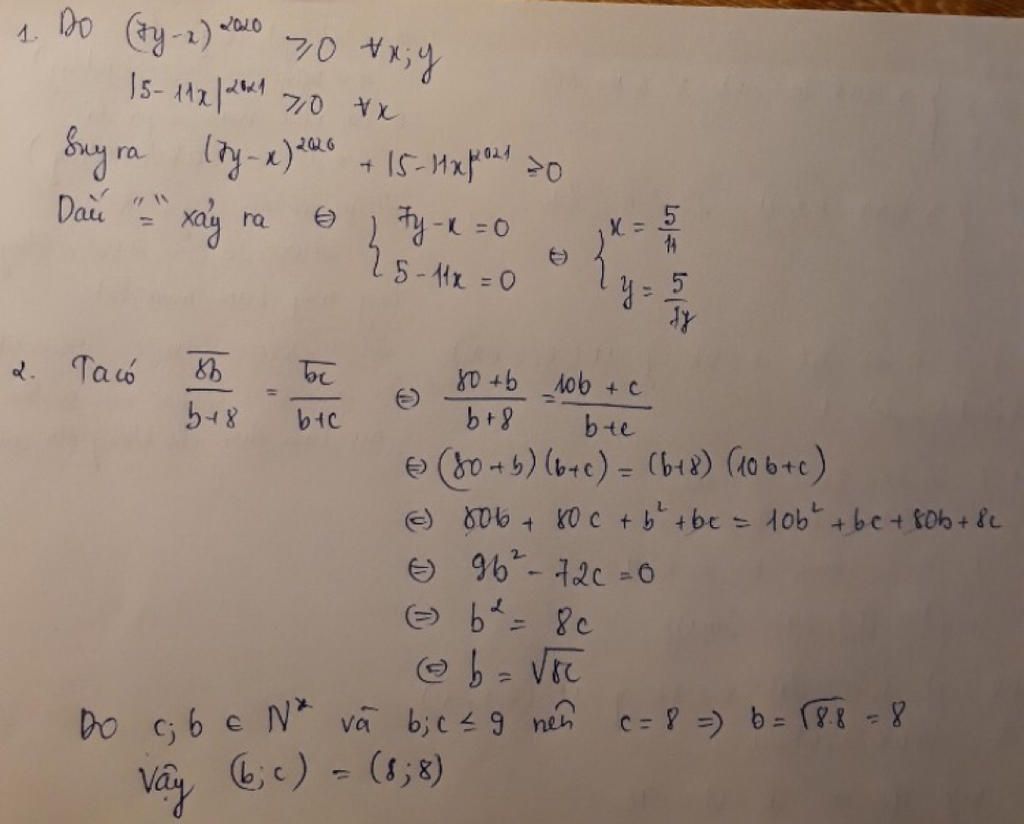 1. Do (7y-x)^2020 ≥0 ∀x;y
|5-11x|^2021 ≥0 ∀x
Suy ra (7y-x)^2020 + |5-11x|^2021 ≥0
Dấu "=" xảy ra ⇔ { 7y-x=0 ; 5-11x=0 ⇔ { x = 5/11 ; y = 5/77
2. Ta có \overline{8b}/(b+8) = \overline{bc}/(b+c) ⇔ (80+b)/(b+8) = (10b+c)/(b+c)
⇔ (80+b)(b+c) = (b+8)(10b+c)
⇔ 80b + 80c + b² + bc = 10b² + bc + 80b + 8c
⇔ 9b² - 72c = 0
⇔ b² = 8c
⇔ b = √8c
Do c;b ∈ N* và b;c ≤ 9 nên c = 8 ⇒ b = √8.8 = 8
Vậy (b;c) = (8;8)